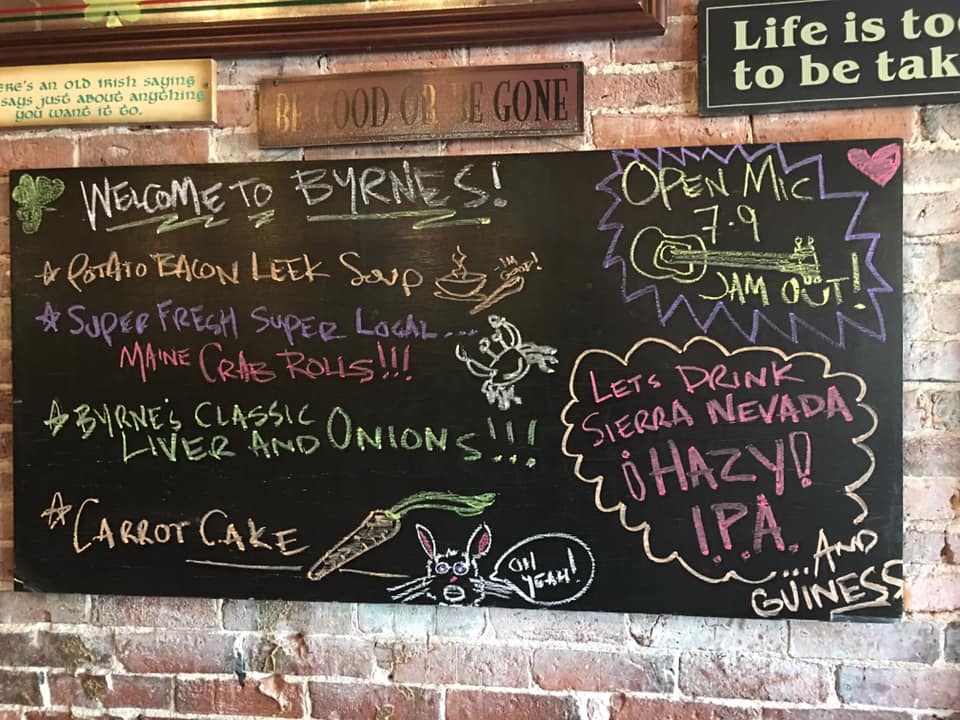 ERE'S AN OLD IRISH SAYING
SAYS JUST ABOUT ANYTHING
YOU WANT IT TO.
BE GOOD OR BE GONE
Life is too
to be tak
WELCOME TO BYRNES!
POTATO BACON LEEK SOUP
I'M GOOD!
SUPER FRESH SUPER LOCAL...
MAINE CRAB ROLLS!!!
BYRNE'S CLASSIC
LIVER AND ONIONS!!!
CARROT CAKE
OH YEAH!
OPEN MIC
7-9
JAM OÜT!
LETS DRINK
SIERRA NEVADA
¡HAZY!
I.P.A.
...AND
GÜINESS